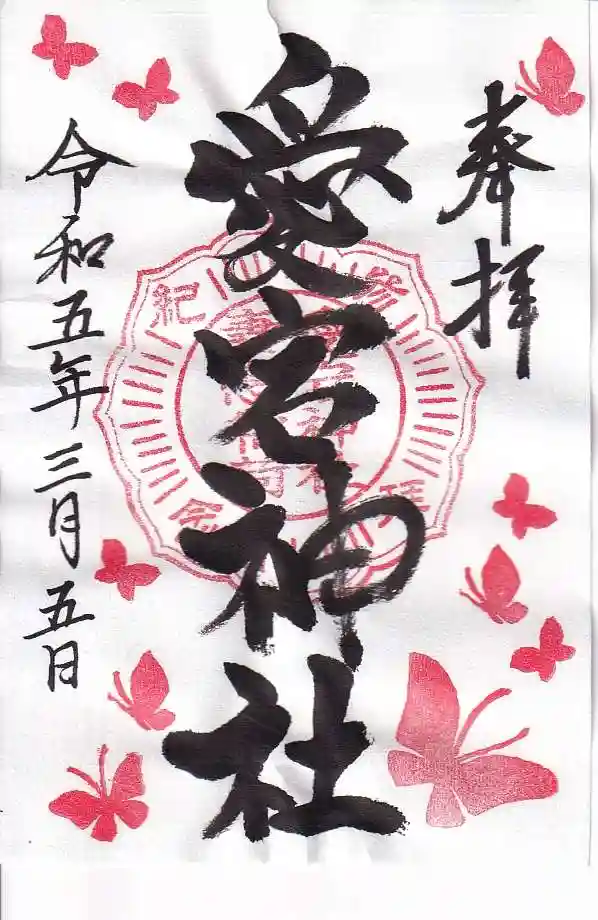 奉拝
愛宕神社
令和五年三月五日
参拝紀念